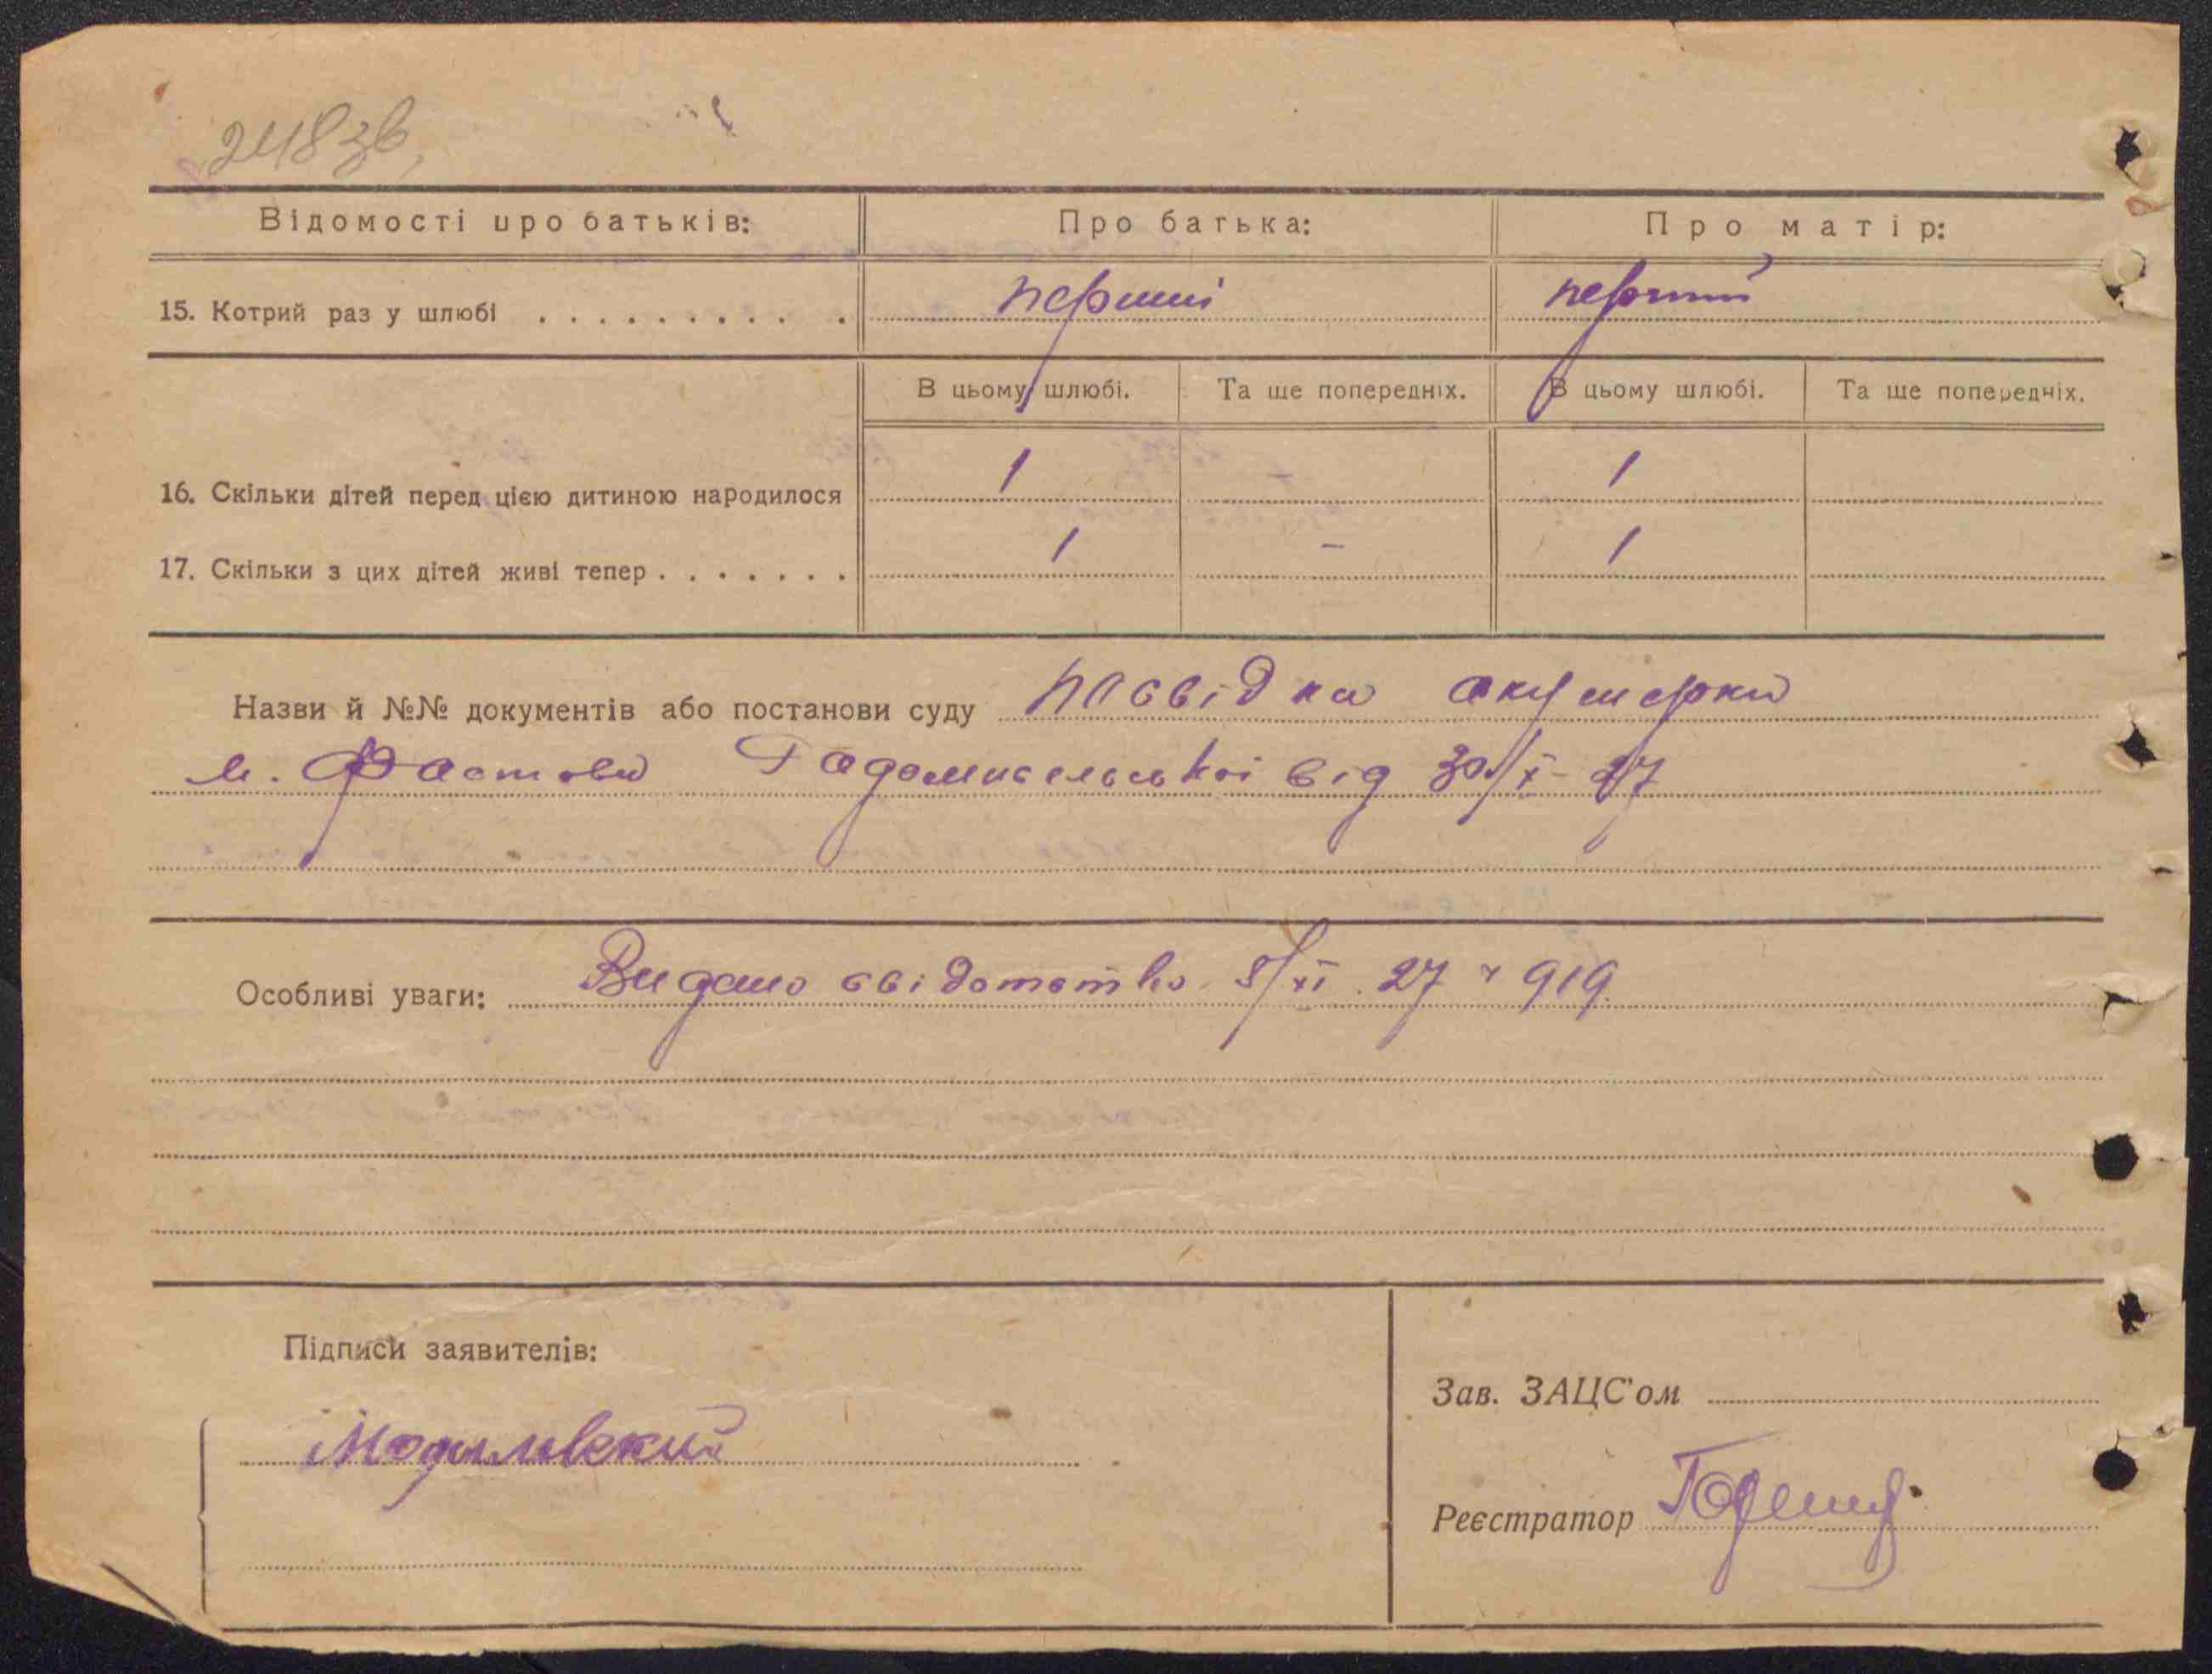 2483в
Відомості про батьків: Про батька: Про матір:
15. Котрий раз у шлюбі . . . . . . . . . . перший перший
В цьому шлюбі. Та ще попередніх. В цьому шлюбі. Та ще попередніх.
16. Скільки дітей перед цією дитиною народилося 1 – 1
17. Скільки з цих дітей живі тепер . . . . . . . 1 – 1
Назви й №№ документів або постанови суду посвідка акушерки
м. Фастова Радомисельської від 30/X-27
Особливі уваги: Видано свідотство 8/XI 27 № 919.
Підписи заявителів:
Могилевский
Зав. ЗАЦС'ом
Реєстратор